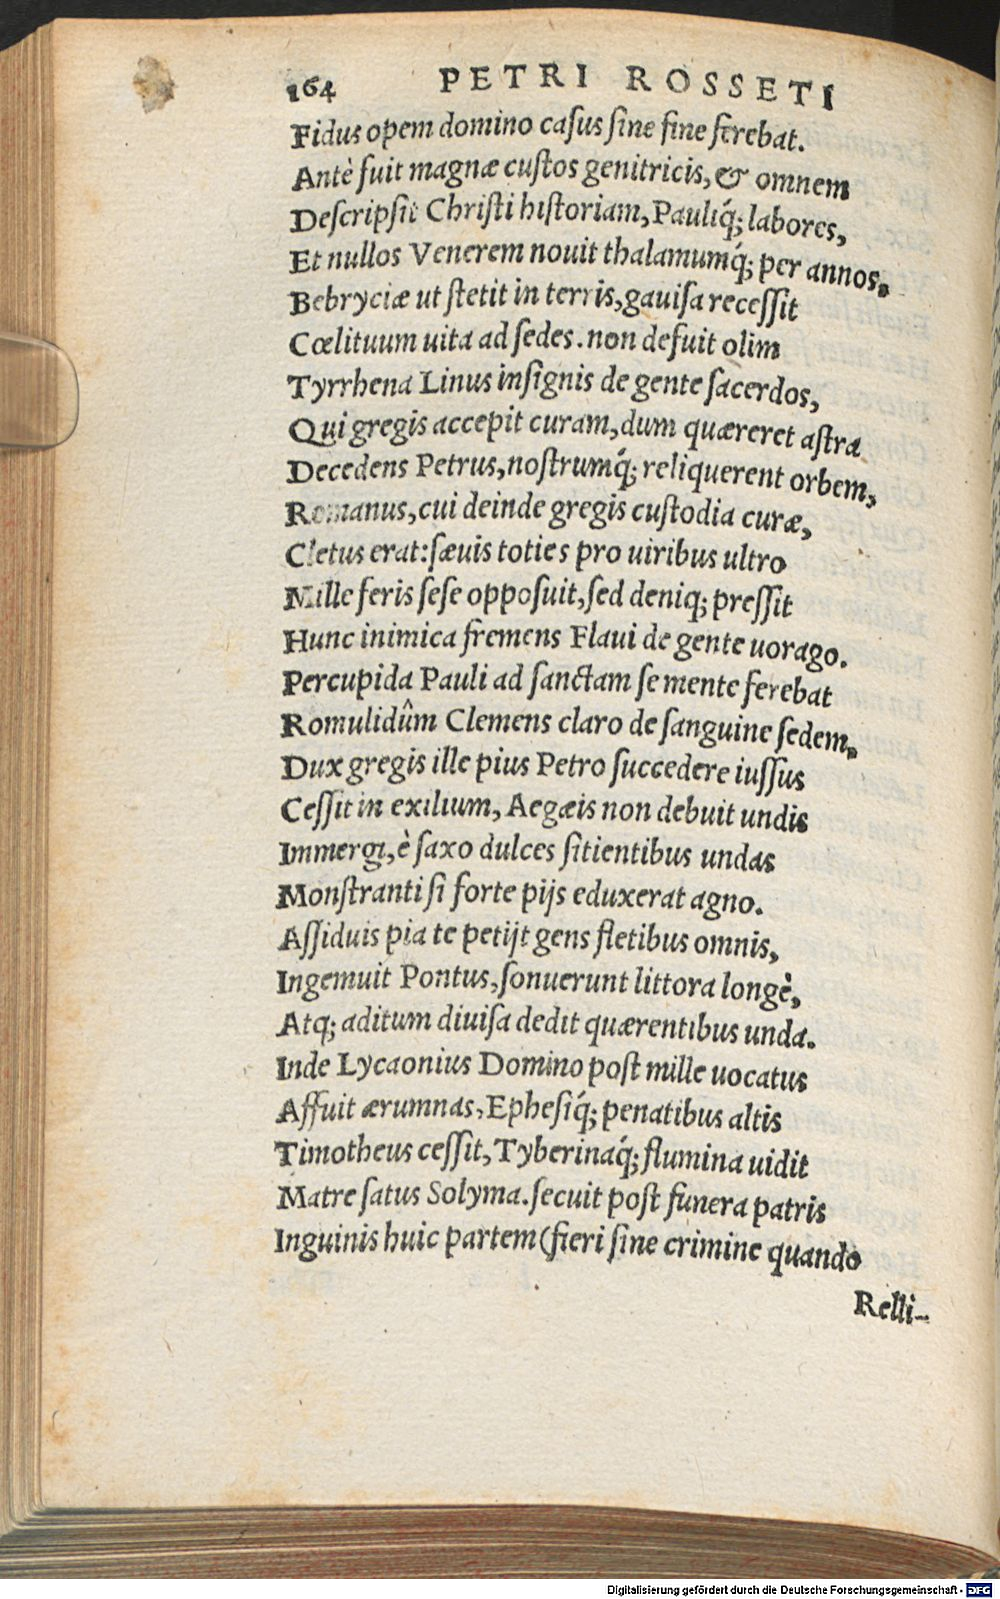 164 PETRI ROSSETI
Fidus opem domino casus ſine fine ferebat.
Antè fuit magnæ cuſtos genitricis, & omnem
Deſcripſit Chriſti hiſtoriam, Pauliq́; labores,
Et nullos Venerem nouit thalamumq́; per annos.
Bebryciæ ut ſtetit in terris, gauiſa receſſit
Cœlituum uita ad ſedes. non defuit olim
Tyrrhena Linus inſignis de gente ſacerdos,
Qui gregis accepit curam, dum quæreret aſtra
Decedens Petrus, noſtrumq́; reliquerent orbem,
Romanus, cui deinde gregis cuſtodia curæ,
Cletus erat: ſæuis toties pro uiribus ultro
Mille feris ſeſe oppoſuit, ſed deniq; preſſit
Hunc inimica fremens Flaui de gente uorago.
Percupida Pauli ad ſanctam ſe mente ferebat
Romulidûm Clemens claro de ſanguine ſedem,
Dux gregis ille pius Petro ſuccedere iuſſus
Ceſſit in exilium, Aegæis non debuit undis
Immergi, è ſaxo dulces ſitientibus undas
Monſtranti ſi forte pijs eduxerat agno.
Aſſiduis pia te petijt gens fletibus omnis,
Ingemuit Pontus, ſonuerunt littora longè,
Atq; aditum diuiſa dedit quærentibus unda.
Inde Lycaonius Domino poſt mille uocatus
Affuit ærumnas, Epheſiq́; penatibus altis
Timotheus ceſſit, Tyberinaq́; flumina uidit
Matre ſatus Solyma. ſecuit poſt funera patris
Inguinis huic partem (fieri ſine crimine quando
Relli-
Digitalisierung gefördert durch die Deutsche Forschungsgemeinschaft - DFG